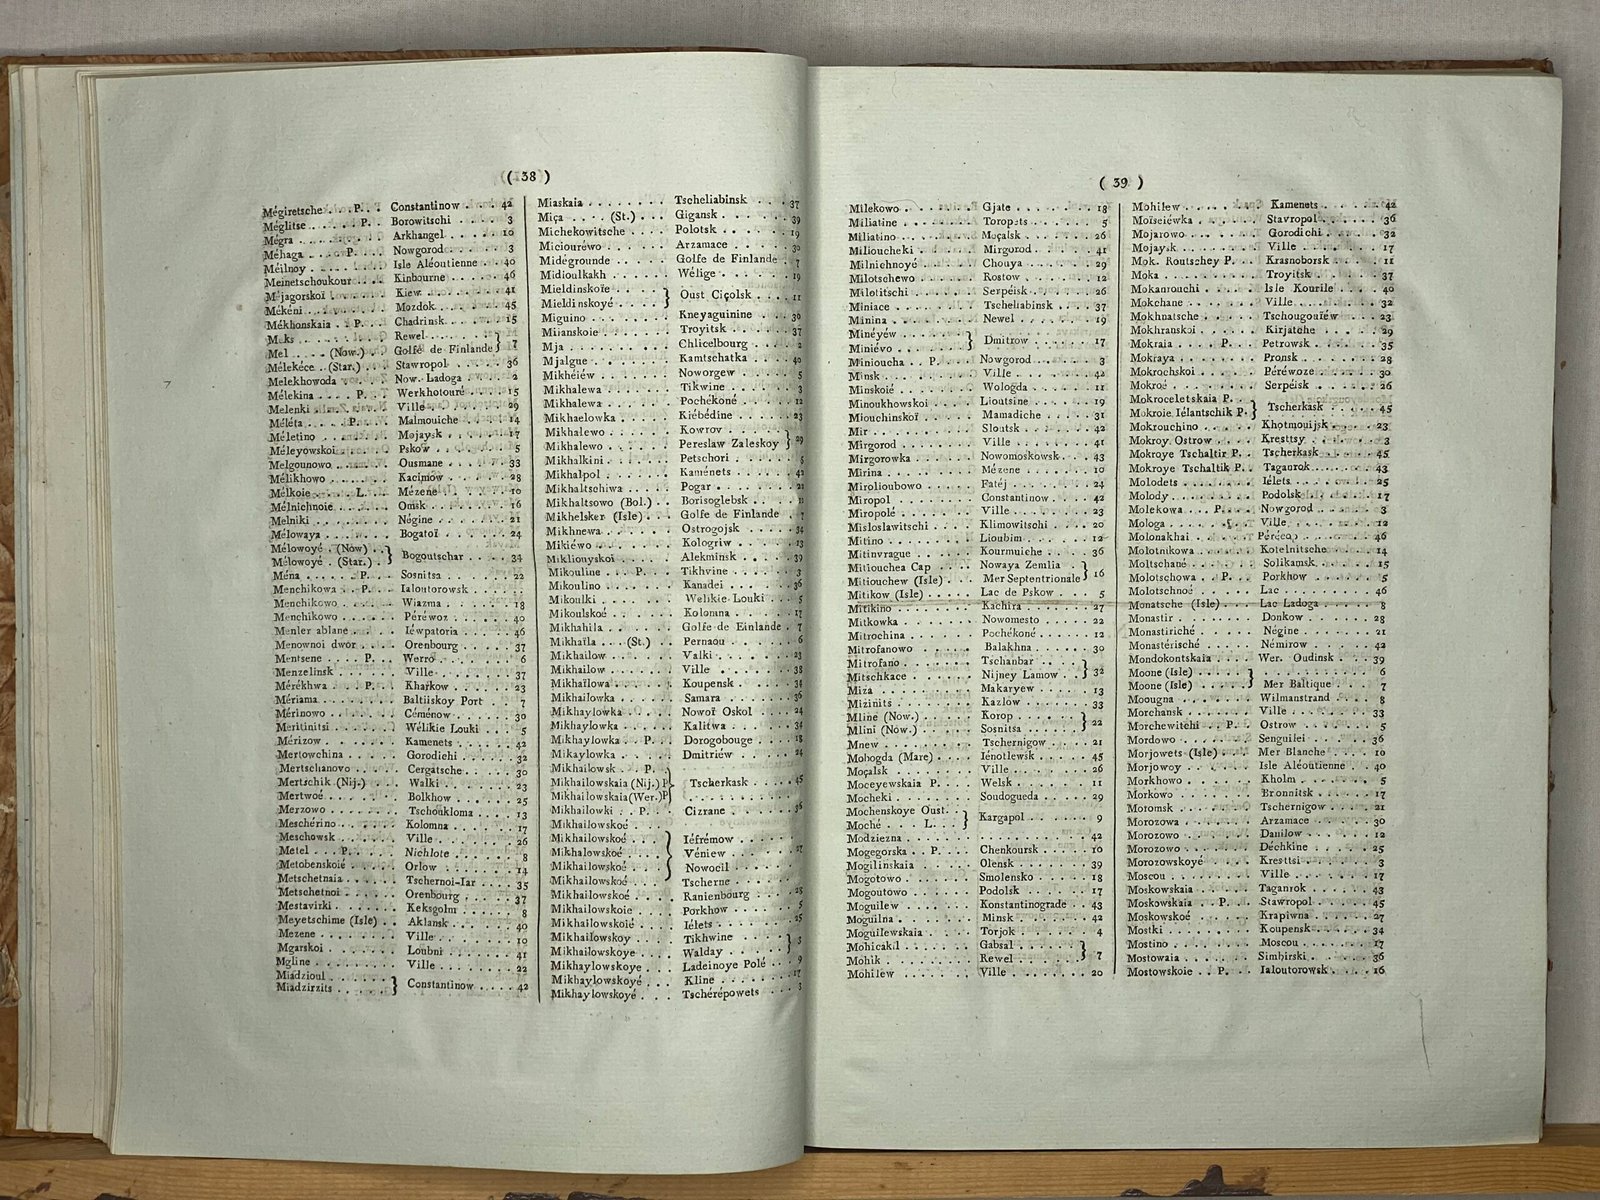 ( 38 )
Mégiretsche . . P. . . Constantinow . . . 42
Méglitse . . . . . P. . . Borowitschi . . . . 3
Mégra . . . . . . . . . Arkhangel . . . . . 10
Méhaga . . . . P. . . Nowgorod . . . . . 3
Méilnoy . . . . . . . . Isle Aléoutienne . . 40
Meinetschoukour . . . . Kinbourne . . . . . 46
Mejagorskoï . . . . . . Kiew . . . . . . . 41
Mékéni . . . . . . . . Mozdok . . . . . . 45
Mékhonskaia . . P. . . Chadrinsk . . . . . 15
Meks . . . . . . . . . Rewel . . . . . . }
Mel . . . . (Now.) . . Golfe de Finlande } 7
Mélekéce . . (Star.) . . Stawropol . . . . . 36
Melekhowoda . . . . . Now. Ladoga . . . . 2
Mélekina . . . . P. . . Werkhotouré . . . . 15
Melenki . . . . . . . . Ville . . . . . . . 29
Méléta . . . . . P. . . Malmouiche . . . . 14
Méletino . . . . . . . Mojaysk . . . . . . 17
Méleyowskoi . . . . . . Pskow . . . . . . . 5
Melgounowo . . . . . . Ousmane . . . . . . 33
Mélikhowo . . . . . . . Kacimow . . . . . . 28
Mélkoie . . . . . L. . . Mézene . . . . . . 10
Mélnichnoie . . . . . . Omsk . . . . . . . 16
Melniki . . . . . . . . Négine . . . . . . . 21
Mélowaya . . . . . . . Bogatoï . . . . . . 24
Mélowoyé . (Now) . . }
Mélowoyé . (Star.) . . } Bogoutschar . . . . 34
Ména . . . . . . P. . . Sosnitsa . . . . . . 22
Menchikowa . . P. . . Ialoutorowsk . . . .
Menchikowo . . . . . . Wiazma . . . . . . 18
Menchikowo . . . . . . Péréwoz . . . . . . 40
Menler ablane . . . . . Iéwpatoria . . . . . 46
Menownoi dwor . . . . Orenbourg . . . . . 37
Mentsene . . . . P. . . Werro . . . . . . . 6
Menzelinsk . . . . . . . Ville . . . . . . . 37
Mérékhwa . . . . P. . . Kharkow . . . . . . 23
Mériama . . . . . . . . Baltiiskoy Port . . . 7
Mérinowo . . . . . . . Céménow . . . . . . 30
Meritinitsi . . . . . . . Wélikie Louki . . . . 5
Mérizow . . . . . . . . Kamenets . . . . . . 42
Mertowchina . . . . . . Gorodichi . . . . . . 32
Mertschanovo . . . . . Cergatsche . . . . . 30
Mertschik (Nij.) . . . . Walki . . . . . . . 23
Mertwoé . . . . . . . . Bolkhow . . . . . . 25
Merzowo . . . . . . . . Tschoukloma . . . . 13
Meschérino . . . . . . Kolomna . . . . . . 17
Meschowsk . . . . . . . Ville . . . . . . . 26
Metel . . . . . P. . . . Nichlote . . . . . . 8
Metobenskoié . . . . . Orlow . . . . . . . 14
Metschetnaia . . . . . . Tschernoi-Iar . . . . 35
Metschetnoi . . . . . . Orenbourg . . . . . 37
Mestavirki . . . . . . . Keksgolm . . . . . . 8
Meyetschime (Isle) . . . Aklansk . . . . . . 40
Mezene . . . . . . . . Ville . . . . . . . 10
Mgarskoi . . . . . . . . Loubni . . . . . . . 41
Mgline . . . . . . . . . Ville . . . . . . . 22
Miadzioul . . . . . . }
Miadzirzits . . . . . . } Constantinow . . . . 42
Miaskaia . . . . . . . . Tscheliabinsk . . . . 37
Miça . . . . (St.) . . . Gigansk . . . . . . 39
Michekowitsche . . . . Polotsk . . . . . . 19
Miciouréwo . . . . . . Arzamace . . . . . . 30
Midégrounde . . . . . Golfe de Finlande . . 7
Midioulkakh . . . . . . Wélige . . . . . . . 19
Mieldinskoïe . . . . }
Mieldinskoyé . . . . } Oust Ciçolsk . . . . 11
Miguino . . . . . . . . Kneyaguinine . . . . 30
Miianskoie . . . . . . . Troyitsk . . . . . . 37
Mja . . . . . . . . . . Chlicelbourg . . . . 2
Mjalgue . . . . . . . . Kamtschatka . . . . 40
Mikhéiéw . . . . . . . Noworgew . . . . . 5
Mikhalewa . . . . . . . Tikwine . . . . . . 3
Mikhalewa . . . . . . . Pochékoné . . . . . 12
Mikhaelowka . . . . . . Kiébédine . . . . . 23
Mikhalewo . . . . . . . Kowrov . . . . . . }
Mikhalewo . . . . . . . Pereslaw Zaleskoy } 29
Mikhalkini . . . . . . . Petschori . . . . . . 5
Mikhalpol . . . . . . . Kaménets . . . . . . 42
Mikhaltschiwa . . . . . Pogar . . . . . . . 22
Mikhaltsowo (Bol.) . . . Borisoglebsk . . . . 11
Mikhelsker (Isle) . . . Golfe de Finlande . . 7
Mikhnewa . . . . . . . Ostrogojsk . . . . . 34
Mikiéwo . . . . . . . . Kologriw . . . . . . 13
Miklionyskoi . . . . . . Alekminsk . . . . . 39
Mikouline . . . P. . . . Tikhvine . . . . . . 3
Mikoulino . . . . . . . Kanadei . . . . . . 36
Mikoulki . . . . . . . . Welikie Louki . . . . 5
Mikoulskoé . . . . . . . Kolomna . . . . . . 17
Mikhahila . . . . . . . Golfe de Einlande . . 7
Mikhaïla . . . (St.) . . Pernaou . . . . . . 6
Mikhailow . . . . . . . Valki . . . . . . . 23
Mikhailow . . . . . . . Ville . . . . . . . 38
Mikhaïlowa . . . . . . . Koupensk . . . . . . 34
Mikhailowka . . . . . . Samara . . . . . . . 36
Mikhaylowka . . . . . . Nowoï Oskol . . . . 24
Mikhaylowka . . . . . . Kalitwa . . . . . . 34
Mikhaylowka . . P. . . Dorogobouge . . . . 18
Mikaylowka . . . . . . Dmitriéw . . . . . . 24
Mikhailowsk . . P. . }
Mikhailowskaia (Nij.) P } Tscherkask . . . . 45
Mikhailowskaia (Wer.) P }
Mikhailowki . . P. . . Cizrane . . . . . . 36
Mikhailowskoé . . . .
Mikhailowskoé . . . . } Iéfrémow . . . .
Mikhalowskoé . . . . } Véniew . . . . . 27
Mikhailowskoé . . . . } Nowocil . . . .
Mikhailowskoé . . . . . Tscherne . . . . .
Mikhailowskoé . . . . . Ranienbourg . . . . 28
Mikhailowskoie . . . . . Porkhow . . . . . . 5
Mikhailowskoié . . . . . Iélets . . . . . . . 25
Mikhailowskoy . . . . . Tikhwine . . . . }
Mikhailowskoye . . . . Walday . . . . . } 3
Mikhaylowskoye . . . . Ladeinoye Polé . . . 9
Mikhaylowskoyé . . . . Kline . . . . . . . 17
Mikhaylowskoyé . . . . Tschérépowets . . . 3
( 39 )
Milekowo . . . . . . . Gjate . . . . . . . 18
Miliatine . . . . . . . . Toropets . . . . . . 5
Miliatino . . . . . . . . Moçalsk . . . . . . 26
Milioucheki . . . . . . Mirgorod . . . . . . 41
Milniehnoyé . . . . . . Chouya . . . . . . . 29
Milotschewo . . . . . . Rostow . . . . . . . 12
Milotitschi . . . . . . . Serpéisk . . . . . . 26
Miniace . . . . . . . . Tscheliabinsk . . . . 37
Minina . . . . . . . . . Newel . . . . . . . 19
Minéyéw . . . . . . }
Miniévo . . . . . . } Dmitrow . . . . . . 17
Minioucha . . P. . . . Nowgorod . . . . . 3
Minsk . . . . . . . . . Ville . . . . . . . 42
Minskoié . . . . . . . . Wologda . . . . . . 11
Minoukhowskoi . . . . Lioutsine . . . . . . 19
Miouchinskoï . . . . . . Mamadiche . . . . . 31
Mir . . . . . . . . . . Sloutsk . . . . . . . 42
Mirgorod . . . . . . . . Ville . . . . . . . 41
Mirgorowka . . . . . . Nowomoskowsk . . . 43
Mirina . . . . . . . . . Mézene . . . . . . . 10
Mirolioubowo . . . . . Fatéj . . . . . . . 24
Miropol . . . . . . . . Constantinow . . . . 42
Miropolé . . . . . . . . Ville . . . . . . . 23
Misloslawitschi . . . . . Klimowitschi . . . . 20
Mitino . . . . . . . . . Lioubim . . . . . . 12
Mitinvrague . . . . . . Kourmuiche . . . . . 36
Mitiouchea Cap . . . . Nowaya Zemlia . . }
Mitiouchew (Isle) . . . Mer Septentrionale } 16
Mitikow (Isle) . . . . . Lac de Pskow . . . . 5
Mitikino . . . . . . . . Kachira . . . . . . 27
Mitkowka . . . . . . . Nowomesto . . . . . 22
Mitrochina . . . . . . . Pochékoné . . . . . 12
Mitrofanowo . . . . . . Balakhna . . . . . . 30
Mitrofano . . . . . . . Tschanbar . . . . }
Mitschkace . . . . . . . Nijney Lamow . . } 32
Miza . . . . . . . . . . Makaryew . . . . . 13
Mizinits . . . . . . . . Kazlow . . . . . . . 33
Mline (Now.) . . . . . . Korop . . . . . . }
Mlini (Now.) . . . . . . Sosnitsa . . . . . } 22
Mnew . . . . . . . . . Tschernigow . . . . 21
Mobogda (Mare) . . . . Iénotlewsk . . . . . 45
Moçalsk . . . . . . . . Ville . . . . . . . 26
Moceyewskaia P. . . . Welsk . . . . . . . 11
Mocheki . . . . . . . . Soudogueda . . . . . 29
Mochenskoye Oust. . }
Moché . . . . L. . . } Kargapol . . . . . . 9
Modziezna . . . . . . . . . . . . . . . . 42
Mogegorska . . P. . . . Chenkoursk . . . . . 10
Mogilinskaia . . . . . . Olensk . . . . . . . 39
Mogotowo . . . . . . . Smolensko . . . . . 18
Mogoutowo . . . . . . Podolsk . . . . . . 17
Moguilew . . . . . . . Konstantinograde . . 43
Moguilna . . . . . . . . Minsk . . . . . . . 42
Moguilewskaia . . . . . Torjok . . . . . . . 4
Mohicakil . . . . . . . Gabsal . . . . . . }
Mohik . . . . . . . . . Rewel . . . . . . } 7
Mohilew . . . . . . . . Ville . . . . . . . 20
Mohilew . . . . . . . . Kamenets . . . . . . 42
Moïseiéwka . . . . . . Stavropol . . . . . . 36
Mojarowo . . . . . . . Gorodichi . . . . . . 32
Mojaysk . . . . . . . . Ville . . . . . . . 17
Mok. Routschey P. . . Krasnoborsk . . . . 11
Moka . . . . . . . . . Troyitsk . . . . . . 37
Mokanrouchi . . . . . . Isle Kourile . . . . . 40
Mokchane . . . . . . . Ville . . . . . . . 32
Mokhnatsche . . . . . . Tschougouïéw . . . . 23
Mokhranskoi . . . . . . Kirjatche . . . . . . 29
Mokraia . . . . P. . . . Petrowsk . . . . . . 35
Mokraya . . . . . . . . Pronsk . . . . . . . 28
Mokrochskoi . . . . . . Péréwoze . . . . . . 30
Mokroé . . . . . . . . Serpéisk . . . . . . 26
Mokroceletskaia P. . }
Mokroie Iélantschik P. } Tscherkask . . . . . 45
Mokrouchino . . . . . . Khotmouijsk . . . . 23
Mokroy Ostrow . . . . Kresttsy . . . . . . 3
Mokroye Tschaltir P. . Tscherkask . . . . . 45
Mokroye Tschaltik P. . Taganrok . . . . . . 43
Molodets . . . . . . . . Iélets . . . . . . . 25
Molody . . . . . . . . . Podolsk . . . . . . 17
Molekowa . . . P. . . . Nowgorod . . . . . 3
Mologa . . . . . . . . . Ville . . . . . . . 12
Molonakhai . . . . . . Pérécop . . . . . . 46
Molotnikowa . . . . . . Kotelnitsche . . . . 14
Moltschané . . . . . . . Solikamsk . . . . . 15
Molotschowa . . P. . . Porkhow . . . . . . 5
Molotschnoé . . . . . . Lac . . . . . . . . 46
Monatsche (Isle) . . . . Lac Ladoga . . . . . 8
Monastir . . . . . . . . Donkow . . . . . . 28
Monastiriché . . . . . . Négine . . . . . . . 21
Monastérisché . . . . . Némirow . . . . . . 42
Mondokontskaia . . . . Wer. Oudinsk . . . . 39
Moone (Isle) . . . . . } . . . . . . . . . 6
Moone (Isle) . . . . . } Mer Baltique . . . . 7
Moougna . . . . . . . . Wilmanstrand . . . . 8
Morchansk . . . . . . . Ville . . . . . . . 33
Morchewitchi . . P. . . Ostrow . . . . . . . 5
Mordowo . . . . . . . . Senguilei . . . . . . 36
Morjowets (Isle) . . . . Mer Blanche . . . . 10
Morjowoy . . . . . . . Isle Aléoutienne . . 40
Morkhowo . . . . . . . Kholm . . . . . . . 5
Morkowo . . . . . . . . Bronnitsk . . . . . . 17
Moromsk . . . . . . . . Tschernigow . . . . 21
Morozowa . . . . . . . Arzamace . . . . . . 30
Morozowo . . . . . . . Danilow . . . . . . 12
Morozowo . . . . . . . Déchkine . . . . . . 25
Morozowskoyé . . . . . Kresttsi . . . . . . . 3
Moscou . . . . . . . . . Ville . . . . . . . 17
Moskowskaia . . . . . . Taganrok . . . . . . 43
Moskowskaia . . P. . . Stawropol . . . . . . 45
Moskowskoé . . . . . . Krapiwna . . . . . . 27
Mostki . . . . . . . . . Koupensk . . . . . . 34
Mostino . . . . . . . . Moscou . . . . . . . 17
Mostowaia . . . . . . . Simbirski . . . . . . 36
Mostowskoie . . P. . . Ialoutorowsk . . . . 16